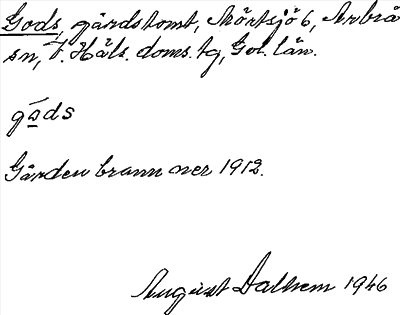 Gods, gårdstomt, Mörtsjö 6, Arbrå
sn, V. Häls. doms. tg, Gol. län.
go̲ds
Gården brann ner 1912.
August Dalhem 1946